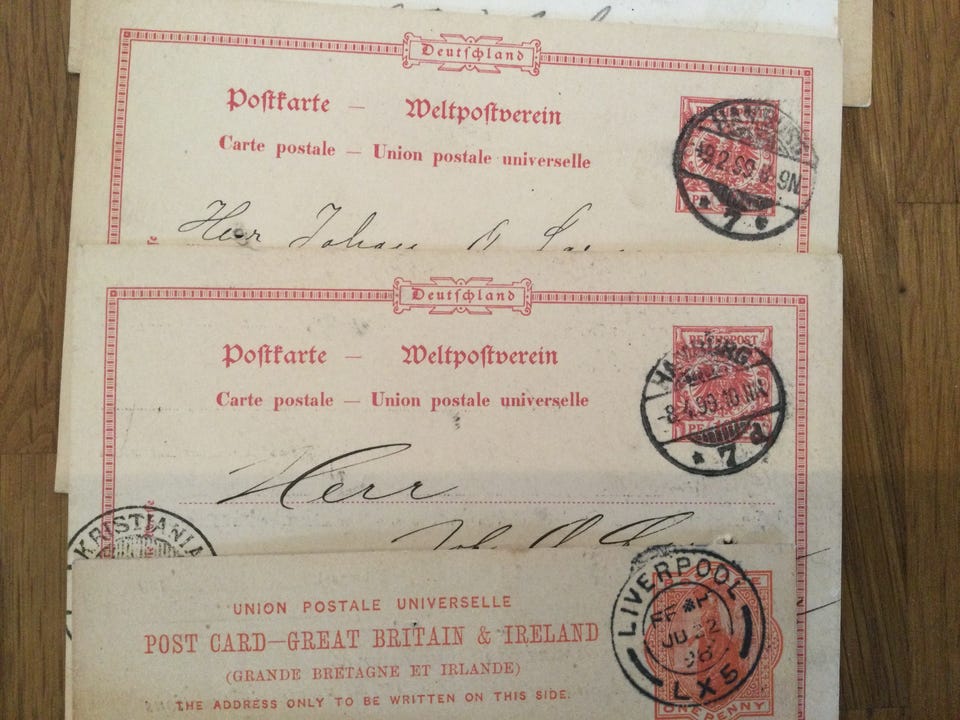 Deutschland
Postkarte — Weltpostverein
Carte postale — Union postale universelle
HAMBURG
7
Herr Johan
Deutschland
Postkarte — Weltpostverein
Carte postale — Union postale universelle
REICHSPOST
HAMBURG
-8.4.99.10
* 7 d
Herr
Joh.
KRISTIANIA
UNION POSTALE UNIVERSELLE
POST CARD—GREAT BRITAIN & IRELAND
(GRANDE BRETAGNE ET IRLANDE)
THE ADDRESS ONLY TO BE WRITTEN ON THIS SIDE.
LIVERPOOL
JU 22
98
LX5
ONE PENNY